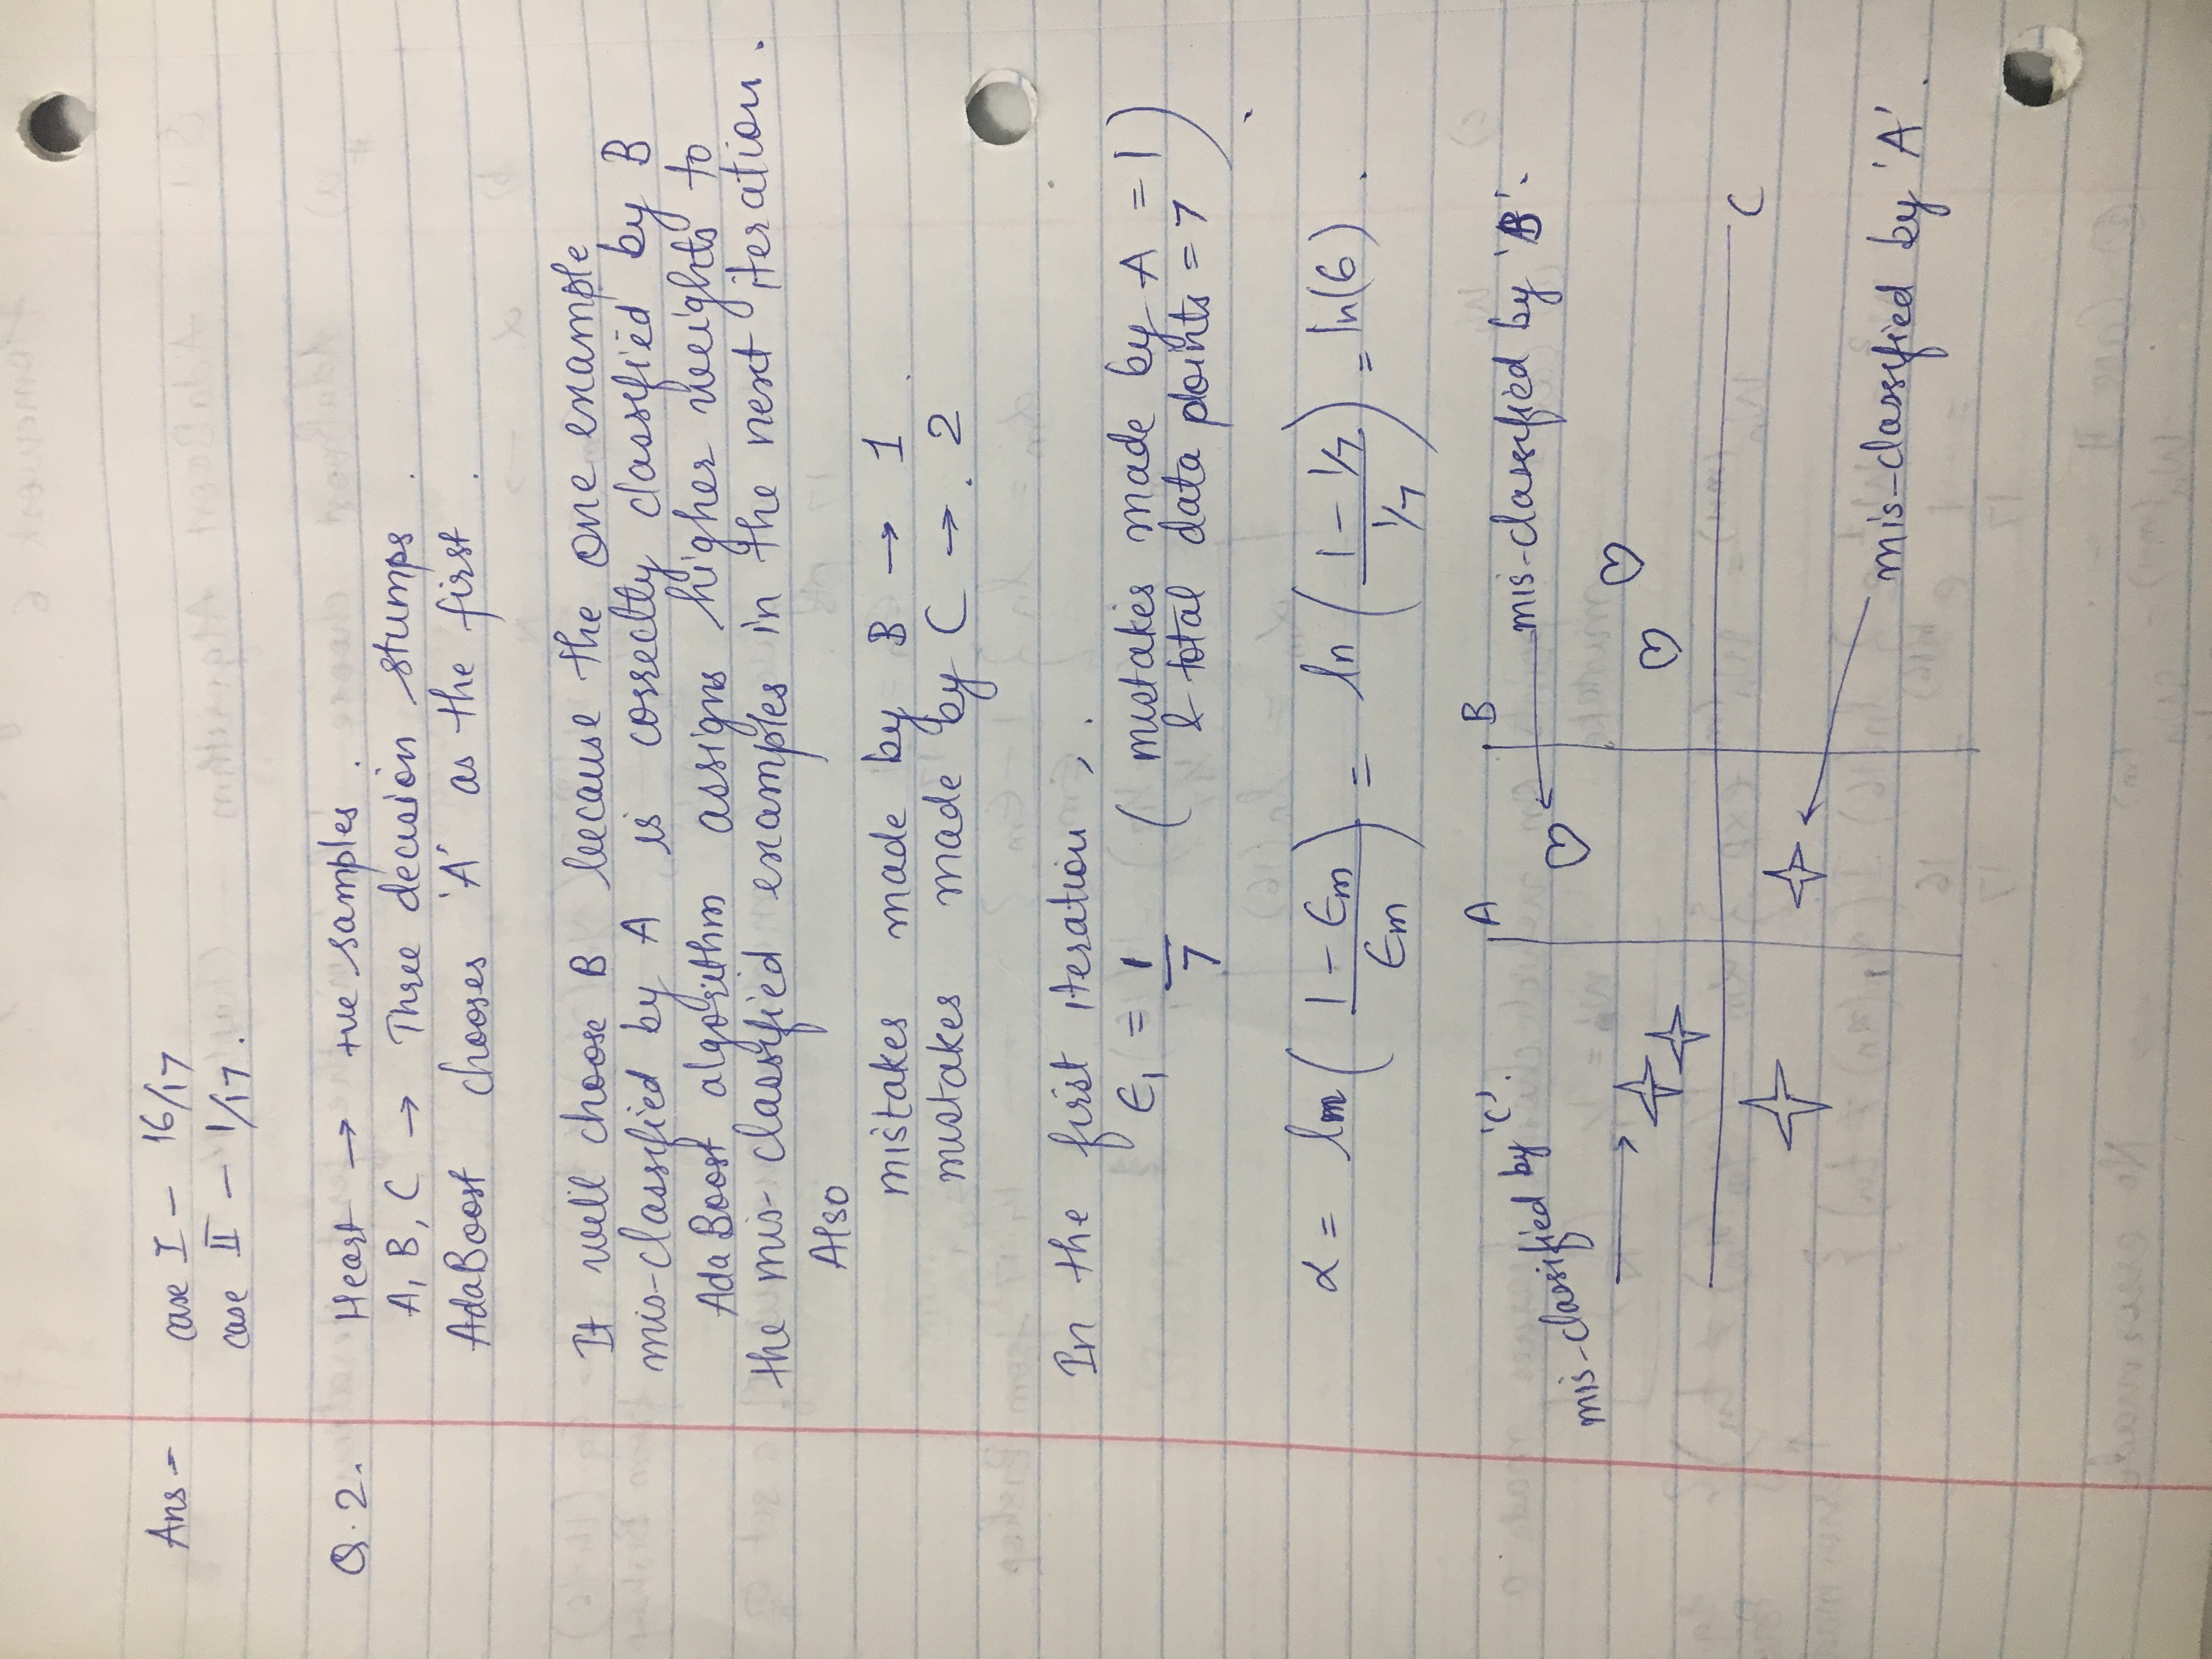 Ans - case I - 16/17
case II - 1/17.
Q.2. Heart → +ve samples.
A, B, C → Three decision stumps.
AdaBoost chooses 'A' as the first.
It will choose B because the one example
mis-classified by A is correctly classified by B
AdaBoost algorithm assigns higher weights to
the mis-classified examples in the next iteration.
Also
mistakes made by B → 1.
mistakes made by C → 2
In the first iteration,
ϵ₁ = 1/7 (mistakes made by A = 1
& total data points = 7)
α = ln((1 - ϵm)/ϵm) = ln((1 - 1/7)/(1/7)) = ln(6).
A B
mis-classified by 'C'.
mis-classified by 'B'.
C
mis-classified by 'A'.